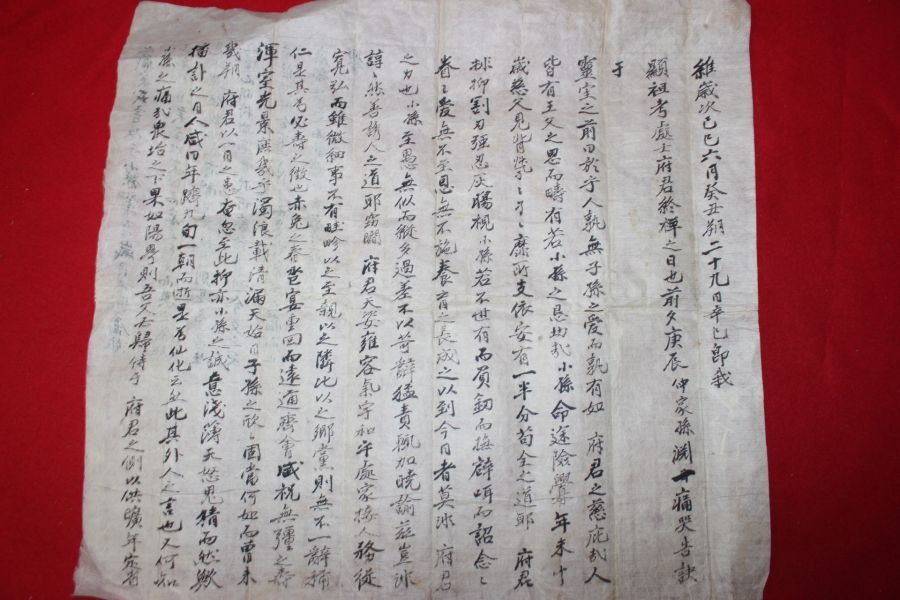 維歲次己巳六月癸丑朔二十九日辛巳卽我
顯祖考處士府君終禫之日也前夕庚辰仲家孫淵 痛哭告訣
于
靈室之前曰於乎人孰無子孫之愛而孰有如 府君之慈庇哉人
皆有王父之恩而疇有若小孫之恩功哉小孫命途險釁年未十
歲慈父見背煢〻孑〻靡所支依安有一半分苟全之道耶 府君
排抑割刃强忍灰腸視小孫若不世有而負劒而撫辟咡而詔念〻
眷〻愛無不至恩無不施養育之長成之以到今日者莫非 府君
之力也小孫至愚無似而縱多過差不以苛辭猛責輒加曉諭玆豈非
諄〻然善誘人之道耶竊瞯 府君天姿雍容氣宇和平處家接人務從
寬弘而雖微細事不有畦畛以之至親以之隣比以之鄕黨則無不一辭稱
仁是其爲必壽之徵也赤兔之春 宴重回而遠邇齊會咸祝無疆之壽
渾室光景庶幾乎濁浪載清滿天 日子孫之歡〻固當何如而曾未
幾朔 府君以一月之患奄忽至此抑亦小孫之誠意淺薄天怒鬼猜而然歟
捐 之日人咸曰年躋九旬一朝而逝是爲仙化云 此其外人之言也人何知
孫之痛哉泉坮之下果如陽界則吾父 歸侍于 府君之側以供曠年定省